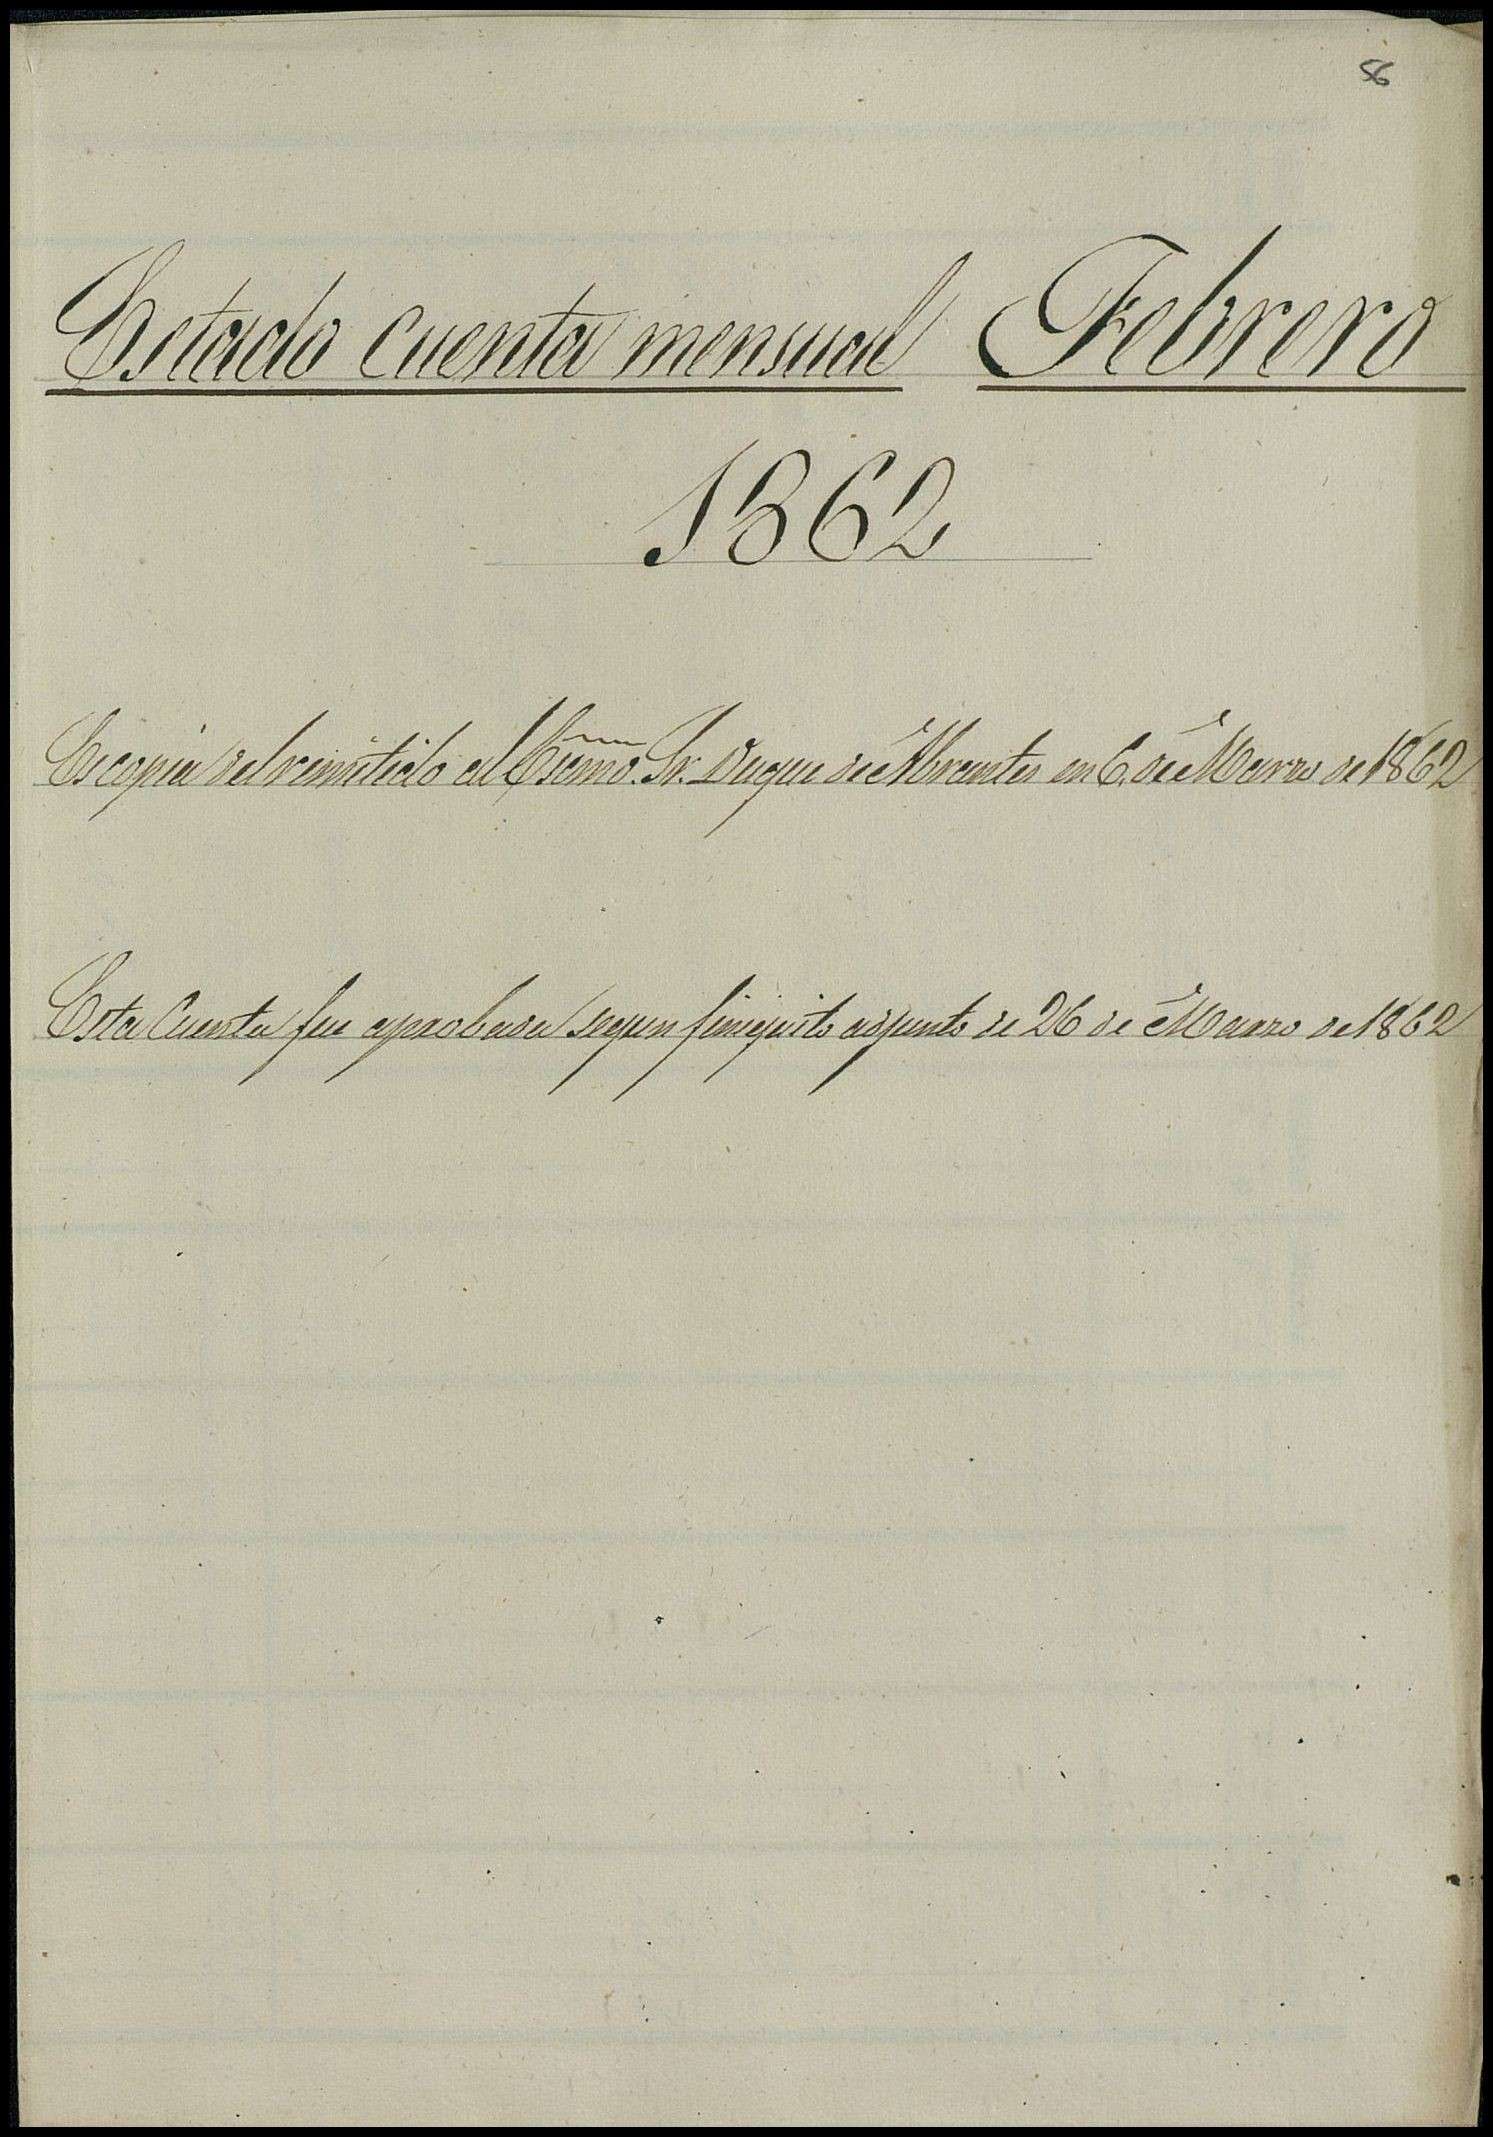 56
Estado cuenta mensual Febrero
1862
Es copia del remitido al Escmo. Sr. Duque de Abrantes en 6. de Marzo de 1862
Esta Cuenta fue aprobada segun finiquito adjunto de 26 de Marzo de 1862